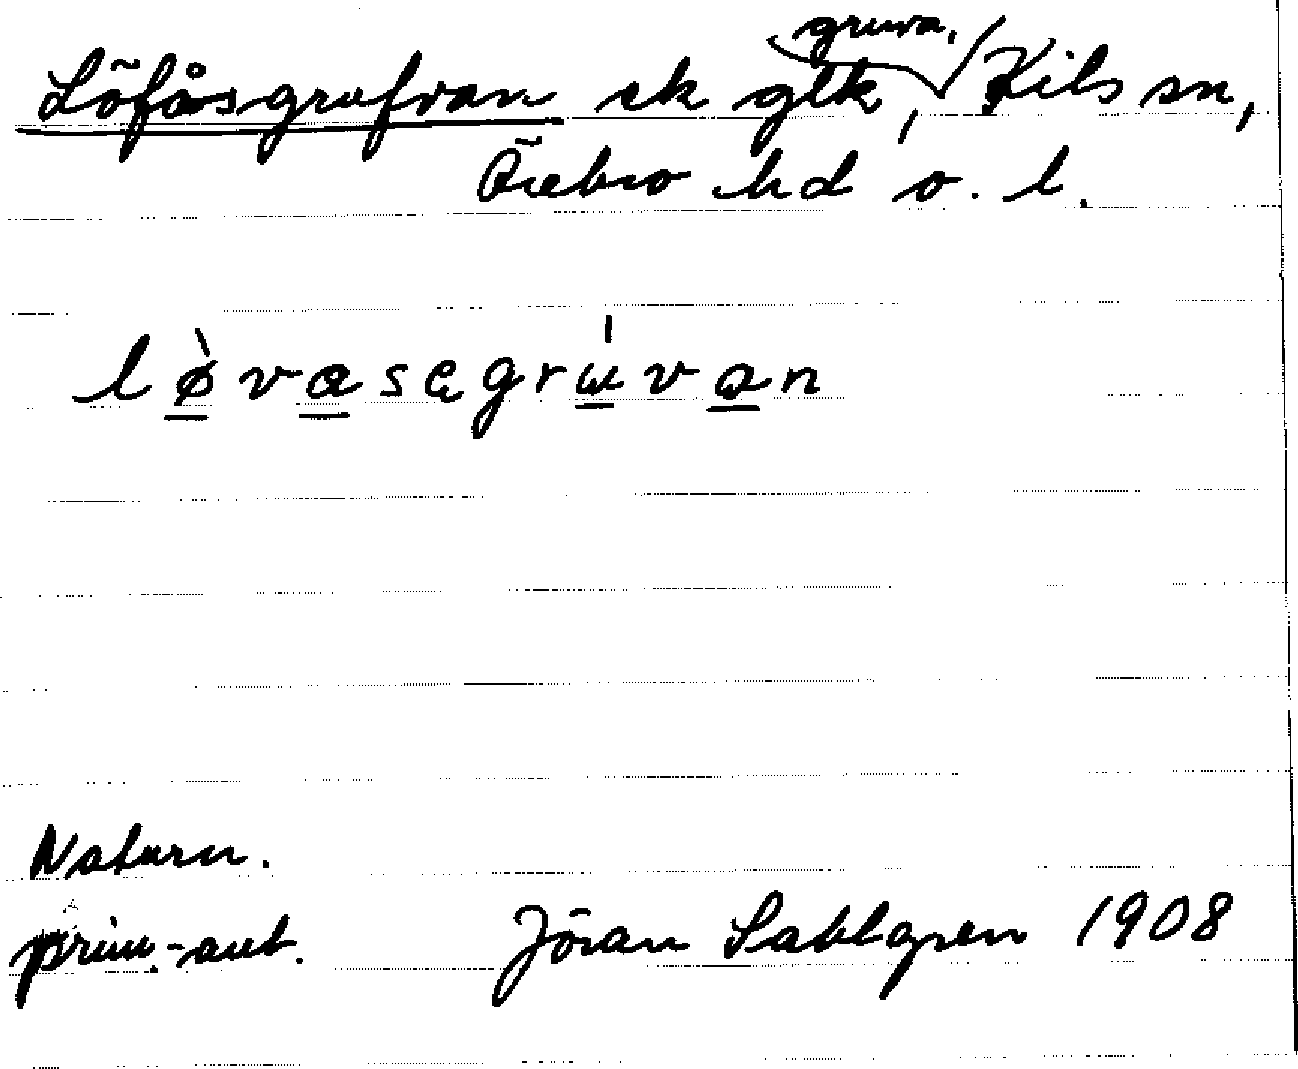 Löfåsgrufvan ek glk, gruva, Kils sn,
Örebro hd o. l.
lø̀vasęgrɯ́van
Naturn.
prim.-ant. Jöran Sahlgren 1908